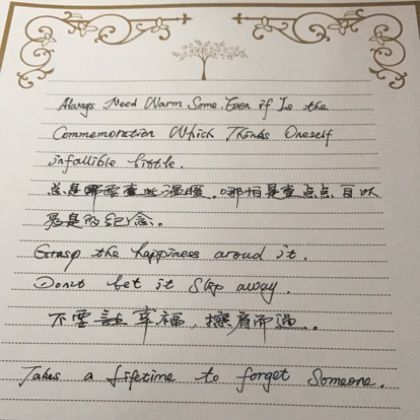 Always Need Warm Some, Even if Is the
Commemoration Which Thinks Oneself
infallible little.
总是需要一些温暖。哪怕是一点点自以
为是的纪念。
Grasp the happiness aroud it.
Don't let it slip away.
不要让幸福,擦肩而过..
Takes a lifetime to forget Someone.